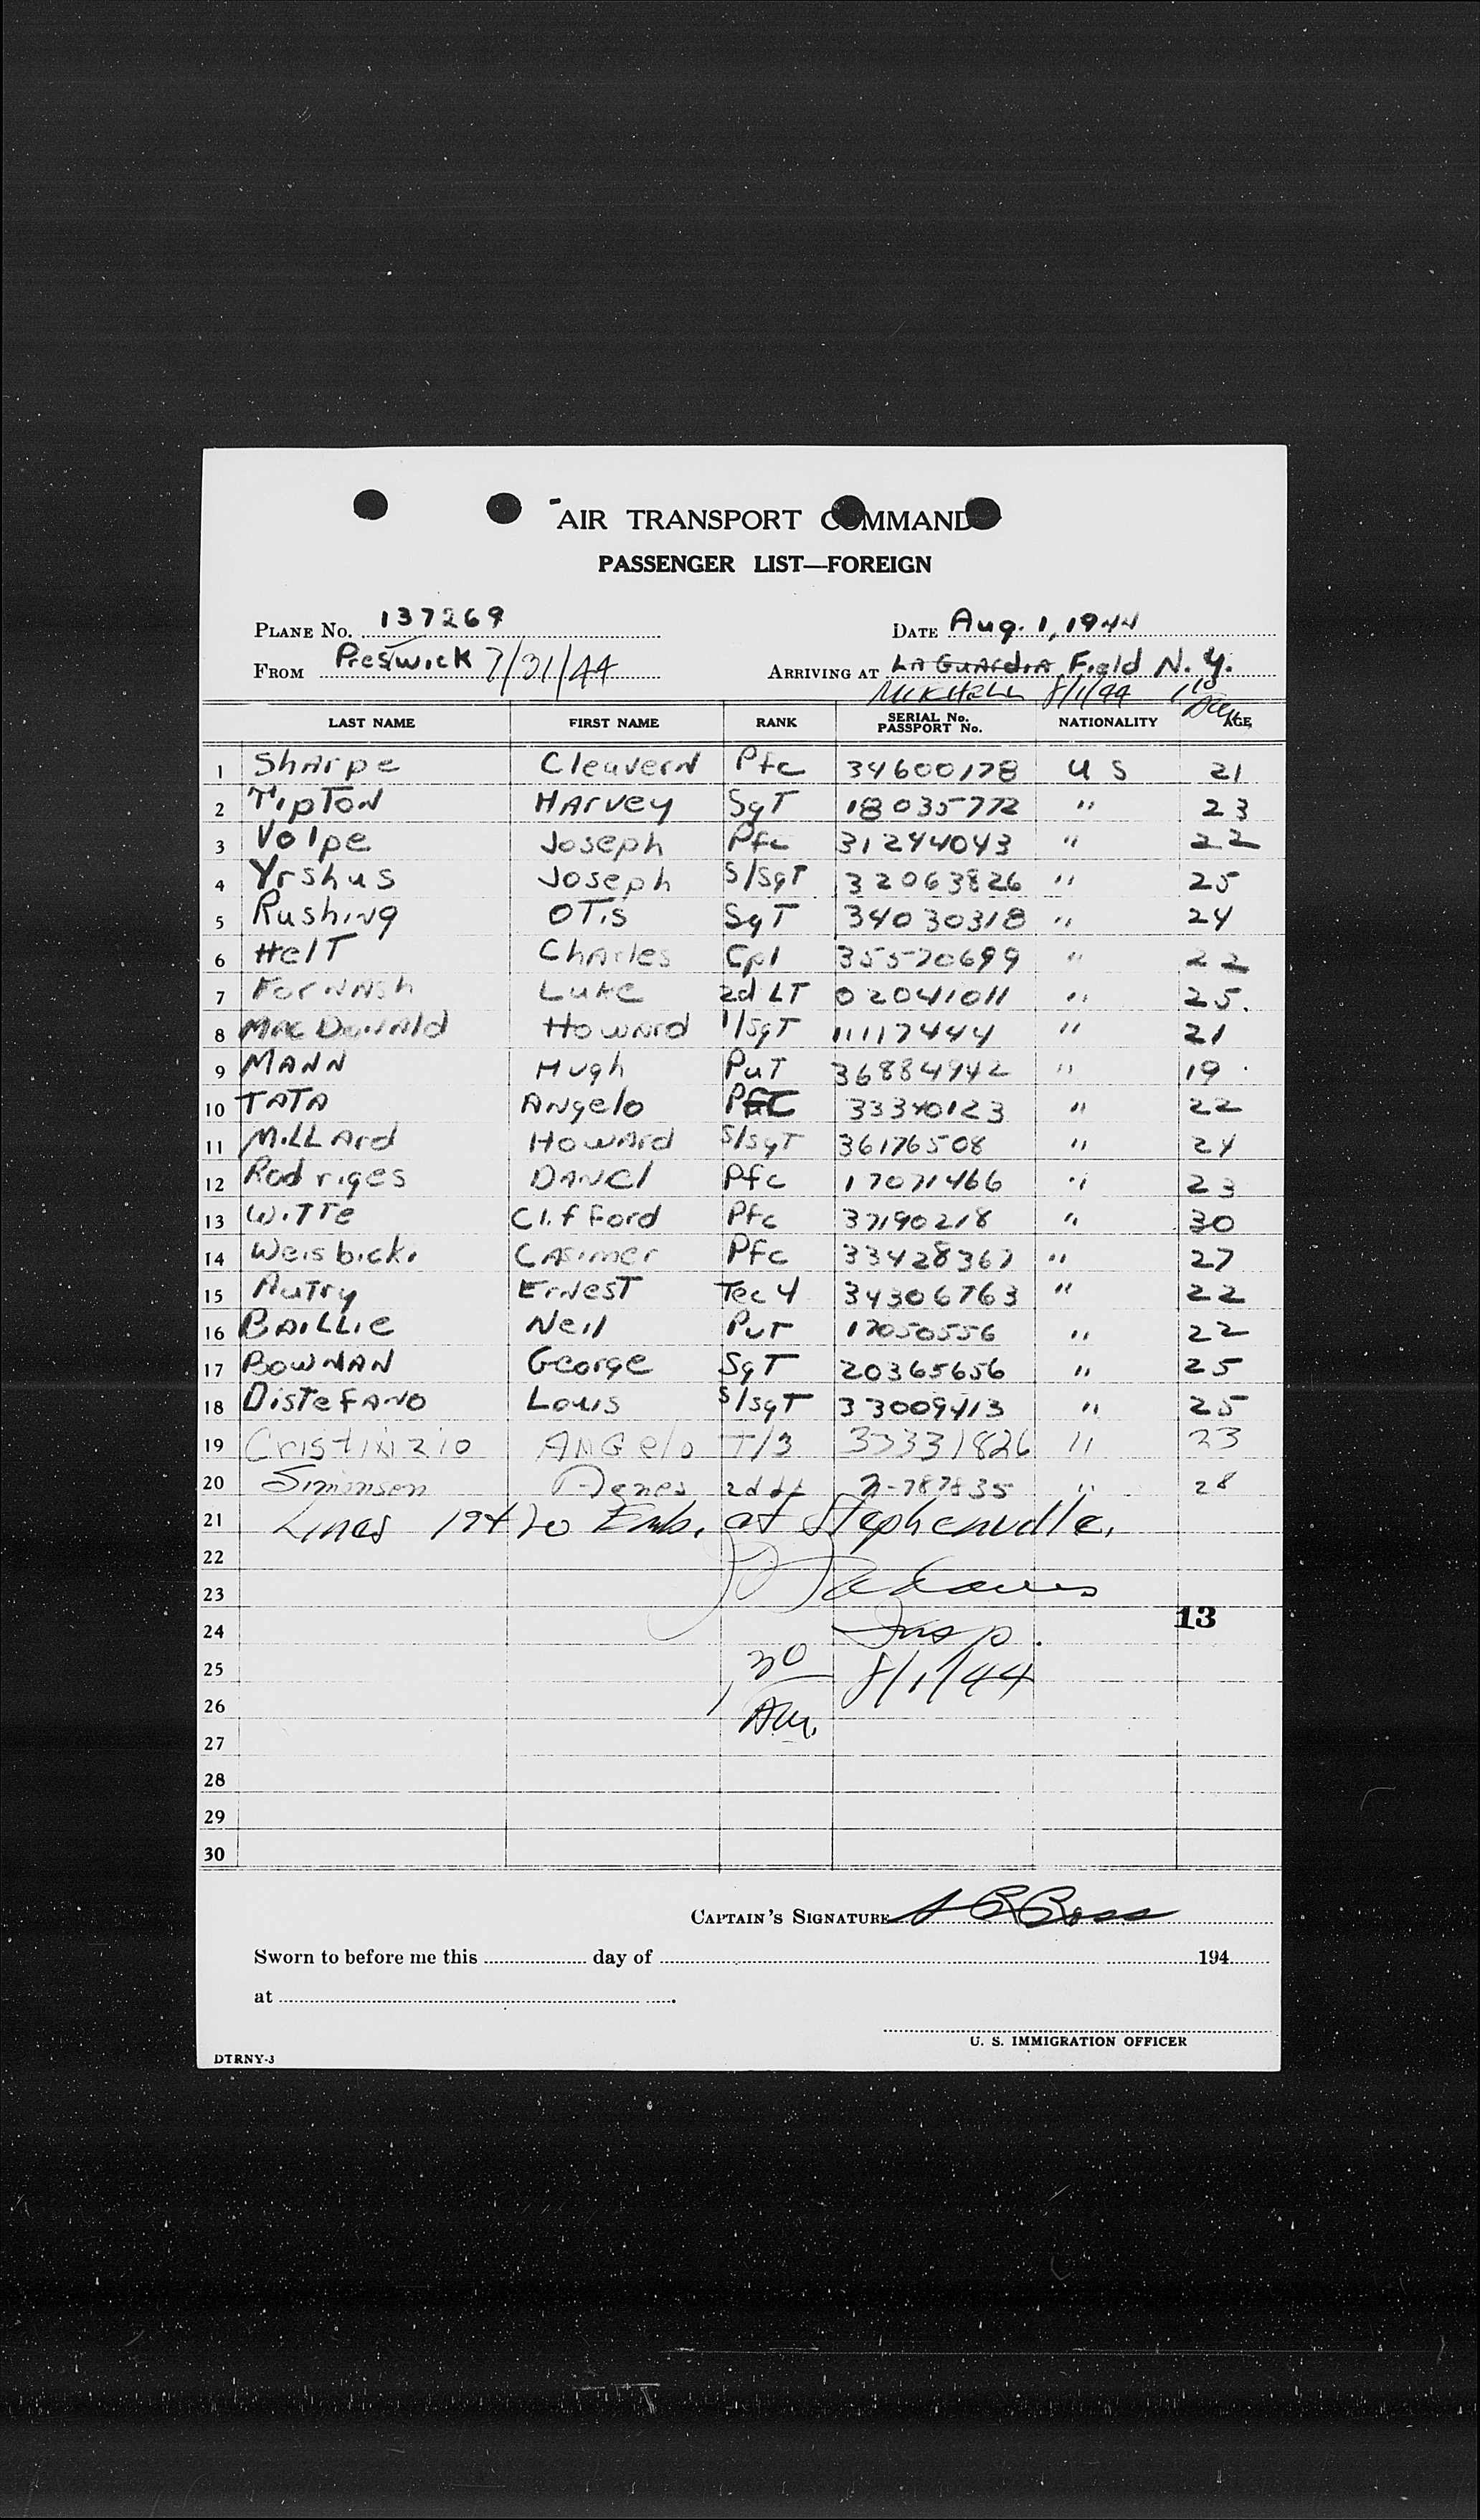 AIR TRANSPORT COMMAND
PASSENGER LIST—FOREIGN
PLANE No. 137269 DATE Aug. 1, 1944
FROM Prestwick 7/31/44 ARRIVING AT La Guardia Field N. Y.
Mitchell 8/1/44
LAST NAME FIRST NAME RANK SERIAL No. PASSPORT No. NATIONALITY AGE
1 Sharpe Cleavern Pfc 34600178 U S 21
2 Tipton Harvey SgT 18035772 " 23
3 Volpe Joseph Pfc 31244043 " 22
4 Yrshus Joseph S/SgT 32063826 " 25
5 Rushing OTis SgT 34030318 " 24
6 HelT Charles Cpl 35570699 " 22
7 Fornash Luke 2d LT 02041011 " 25.
8 MacDonald Howard 1/SgT 11117444 " 21
9 MANN Hugh PvT 36884942 " 19
10 TATA Angelo PFC 33340123 " 22
11 MiLLard Howard S/SgT 36176508 " 24
12 Rodriges Danel Pfc 17071466 " 23
13 WiTTe Clifford Pfc 37190218 " 30
14 Weisbicki Casimer Pfc 33428367 " 27
15 AuTry ErnesT Tec 4 34306763 " 22
16 BAiLLie Neil PvT 17050556 " 22
17 BOWNAN George SgT 20365656 " 25
18 DisTefano Louis S/SgT 33009413 " 25
19 Cristinzio Angelo T/3 33331826 " 23
20 Simonsen Agnes 2d Lt N-787835 " 28
21 Lines 19 + 20 Emb. at Stephenville.
22
23
24 Insp. 13
25 20 8/1/44
26
27
28
29
30
CAPTAIN'S SIGNATURE
Sworn to before me this day of 194
at
U. S. IMMIGRATION OFFICER
DTRNY-3